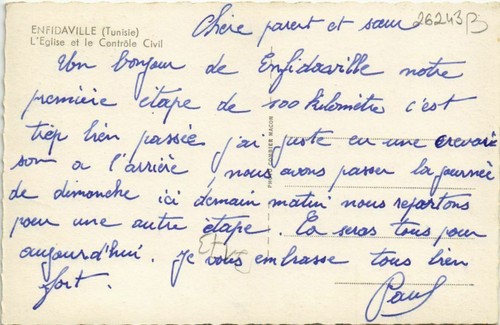 Chère parent et sœur
26243B
ENFIDAVILLE (Tunisie)
L'Eglise et le Contrôle Civil
Un bonjour de Enfidaville notre
première étape de 100 kilomètre c'est
trép bien passée j'ai juste eu une crevai
son a l'arrière, nous avons passer la journée
de dimanche ici demain matin nous repartons
pour une autre étape. Ca seras tous pour
aujourd'hui. Je vous embrasse tous bien
fort.
Paul
PHOTO COMBIER MACON